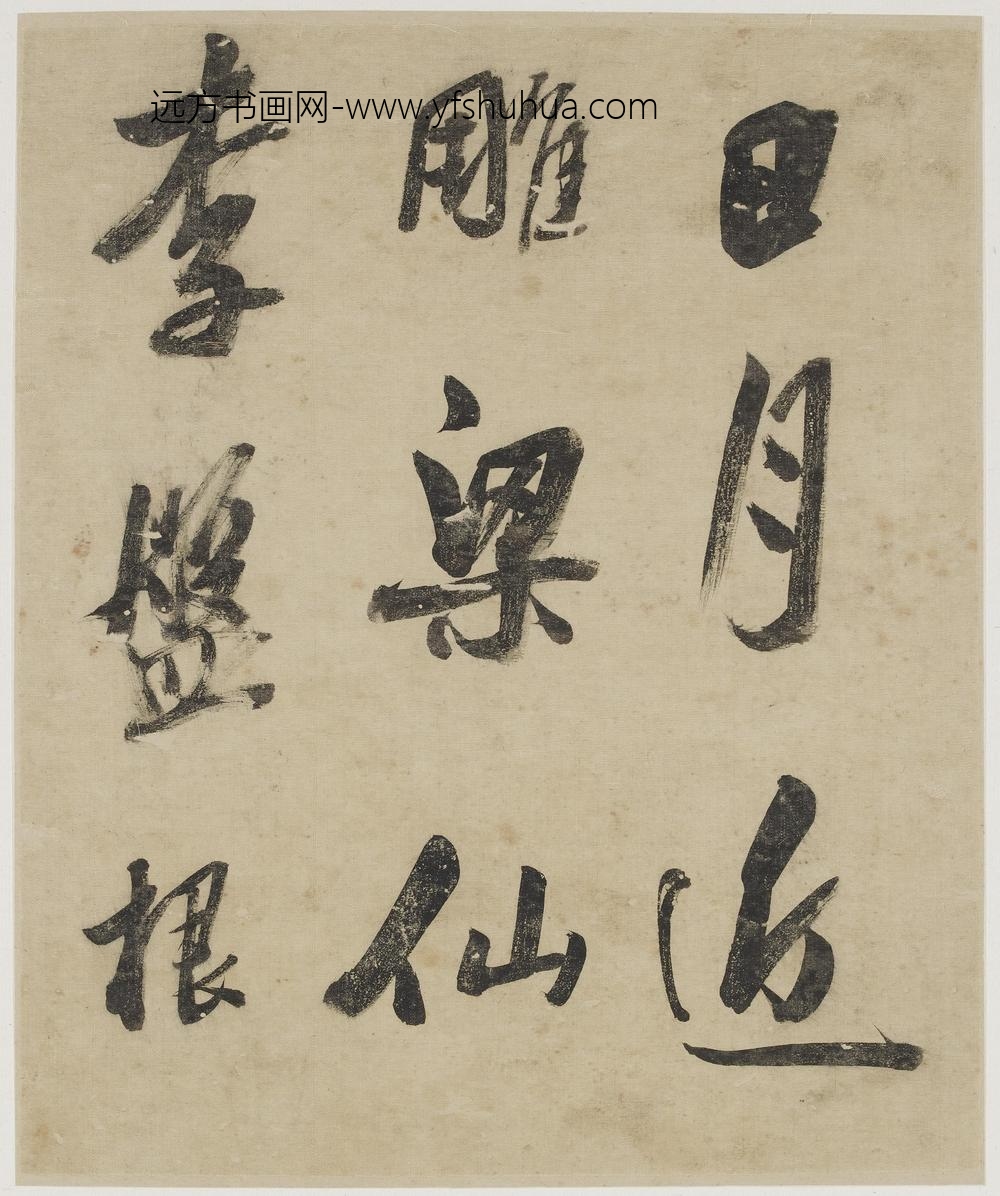 远方书画网-www.yfshuhua.com
日月近
雕梁仙
李盤根